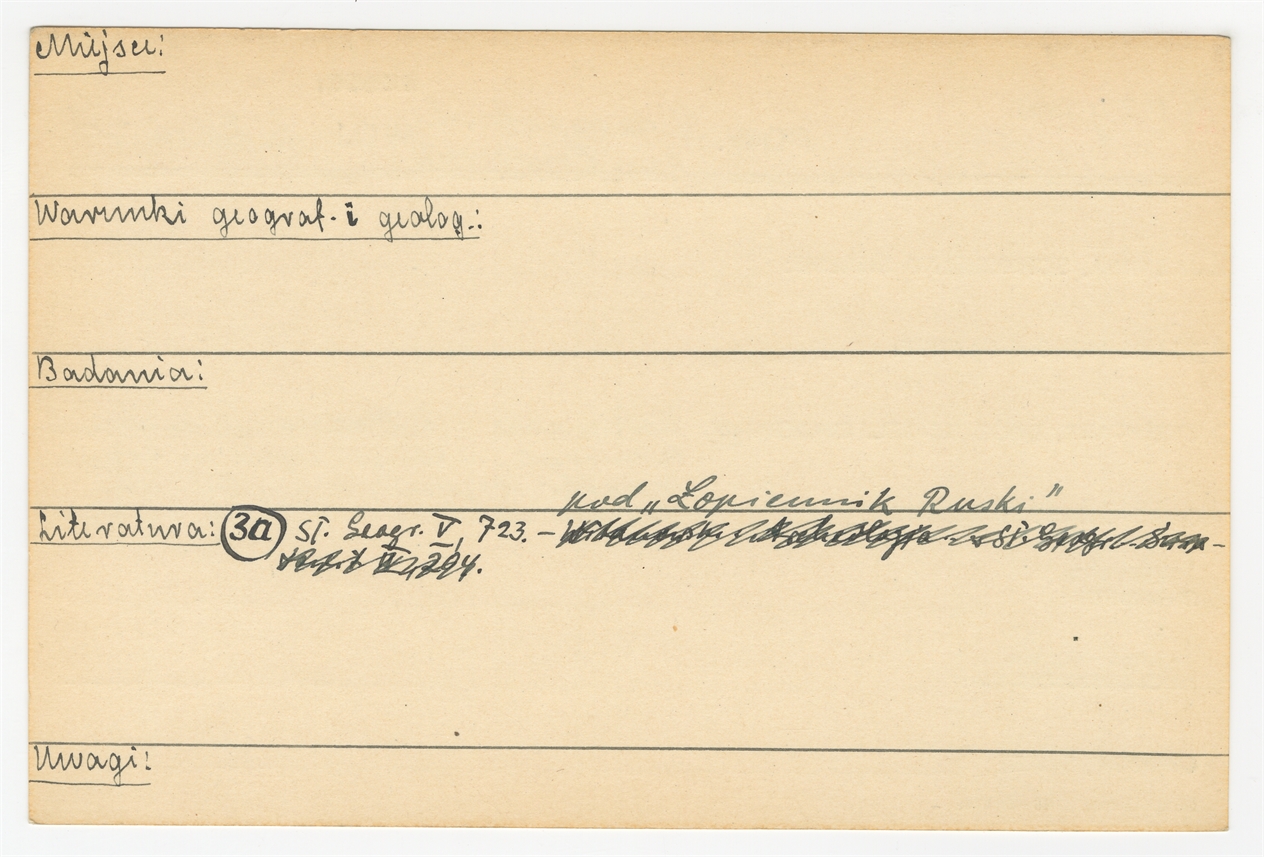 Miejsce:
Warunki geograf. i geolog.:
Badania:
pod „Łopiennik Ruski”
Literatura: 3a Sł. Geogr. V, 723. –
Uwagi: